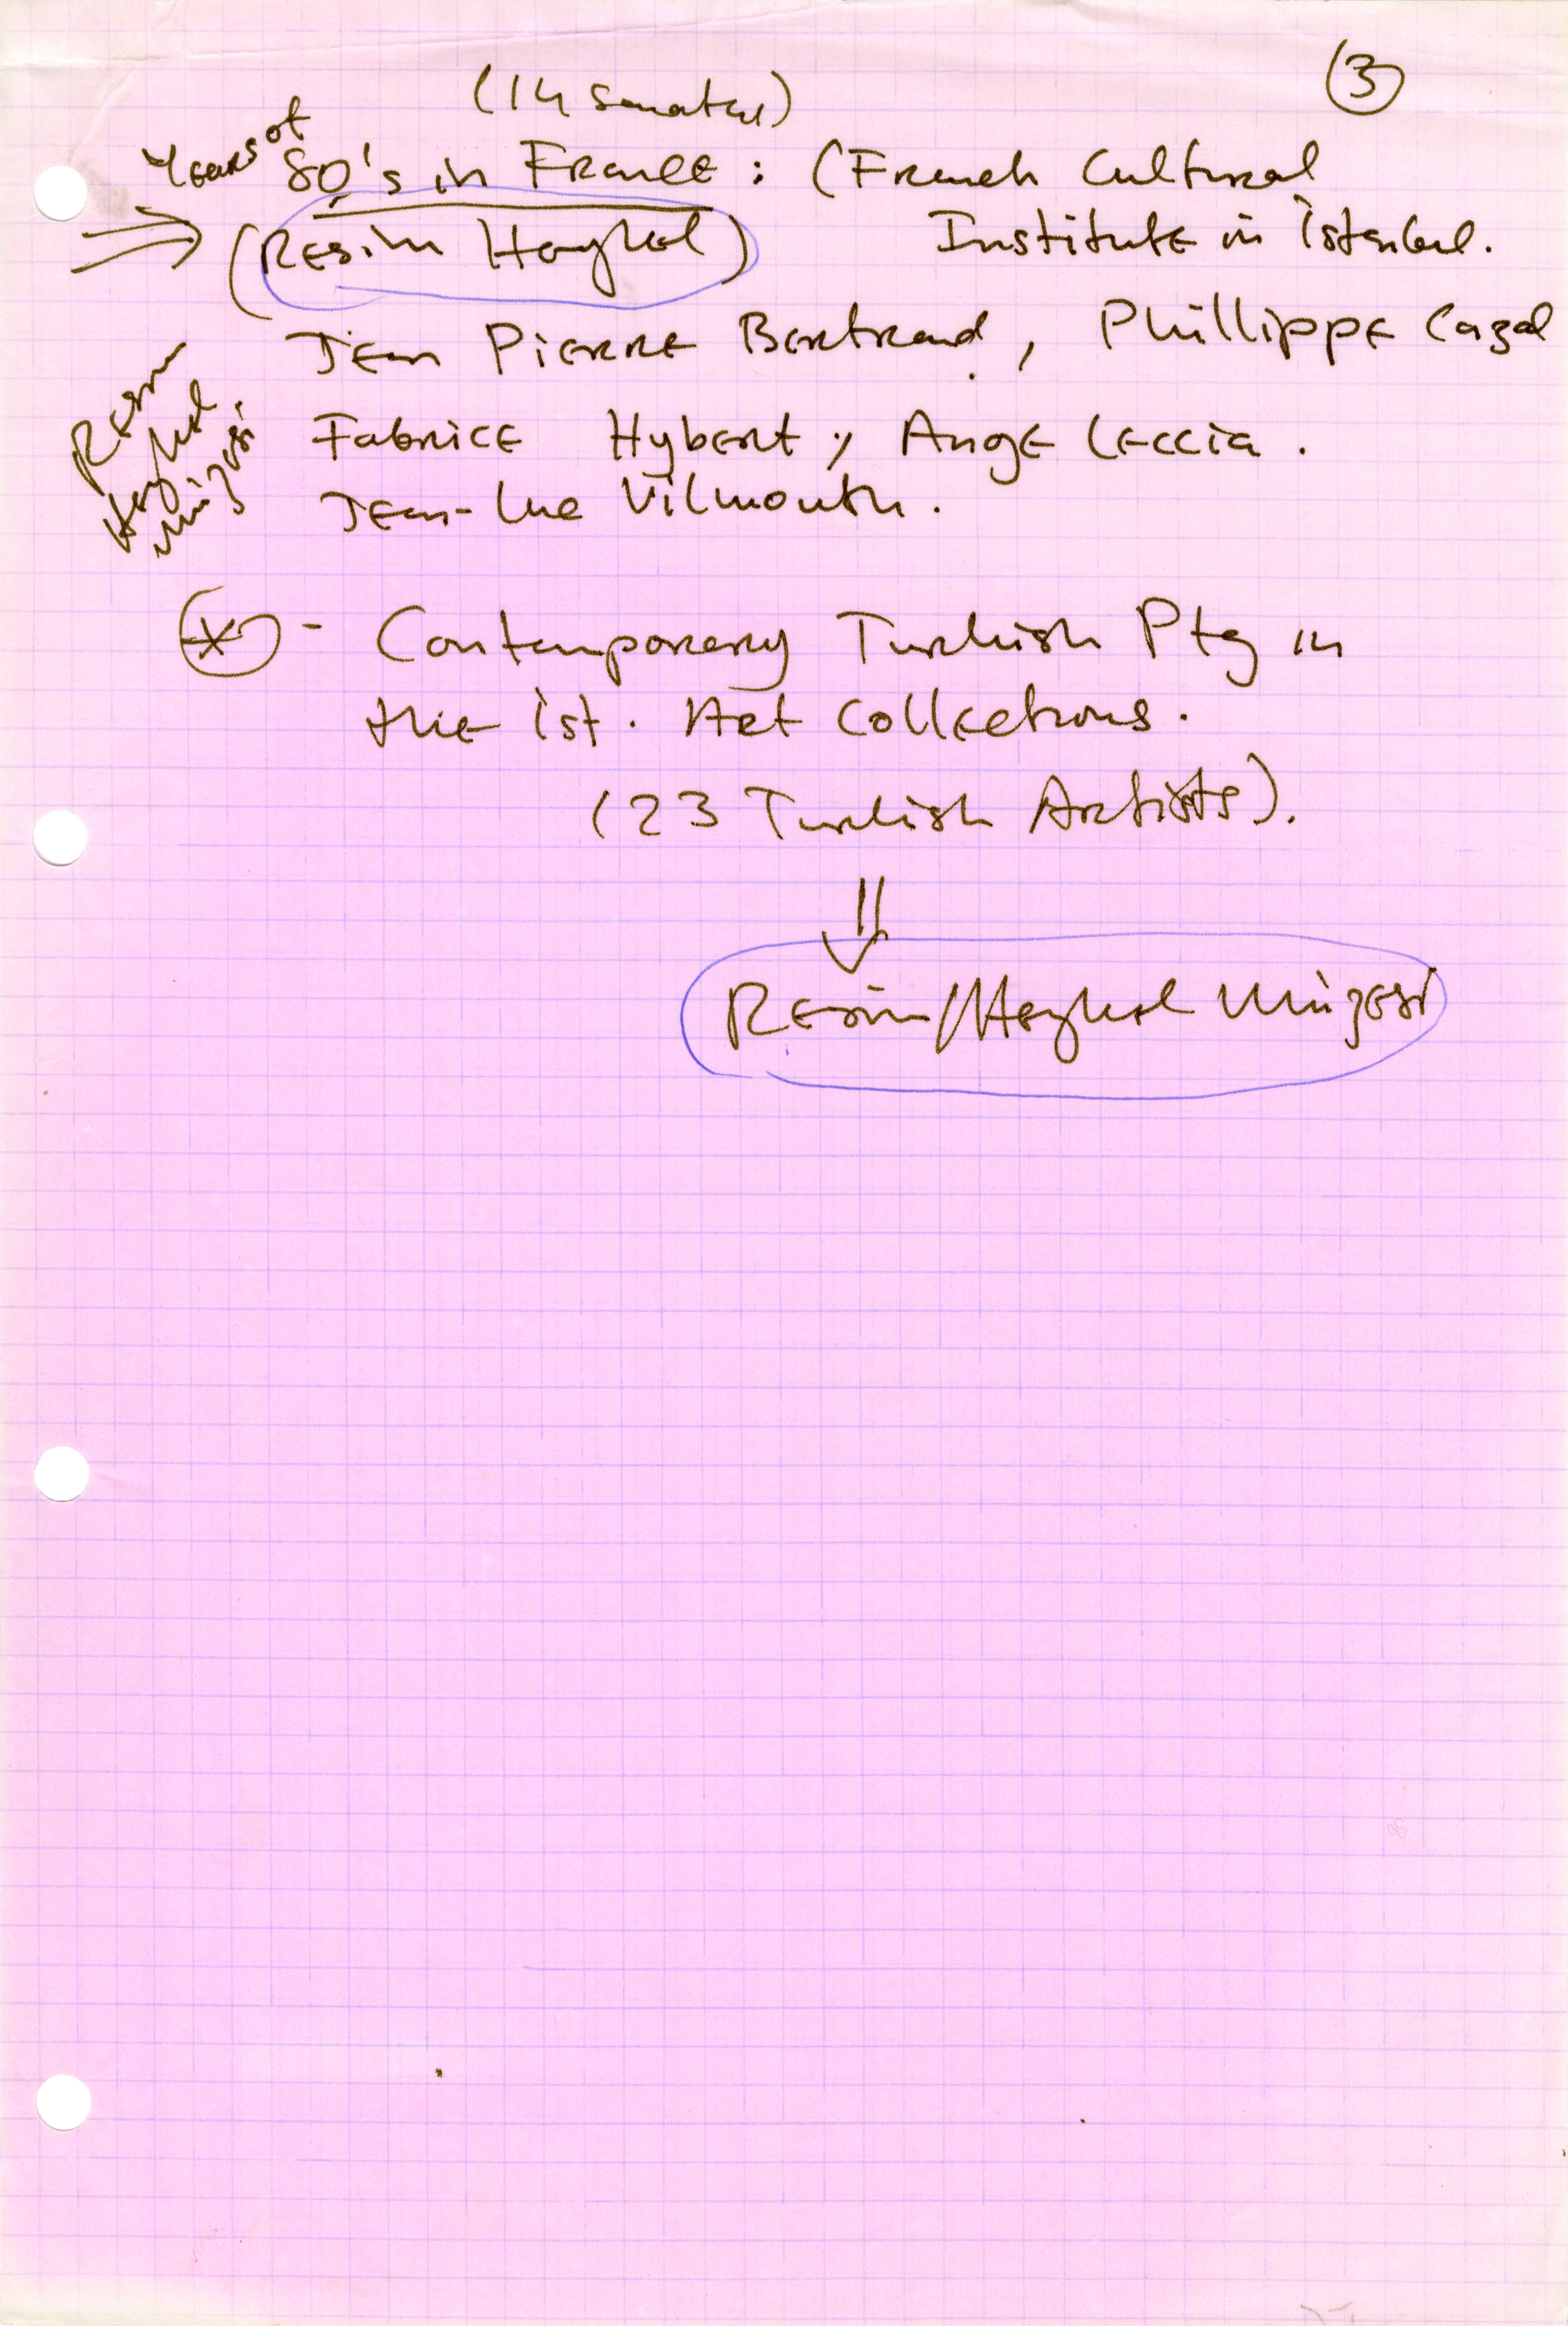 3
(14 sanatçı)
Years of 80's in France : (French Cultural
(Resim Heykel) Institute in İstanbul.
Jean Pierre Bertrand, Phillippe Cazal
Resim
Heykel
Müzesi
Fabrice Hybert, Ange Leccia.
Jean-Luc Vilmouth.
* - Contemporary Turkish Ptg in
the İst. Art Collections.
(23 Turkish Artists).
Resim/Heykel Müzesi